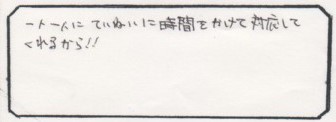 一人一人に ていねいに時間をかけて対応して
くれるから!!